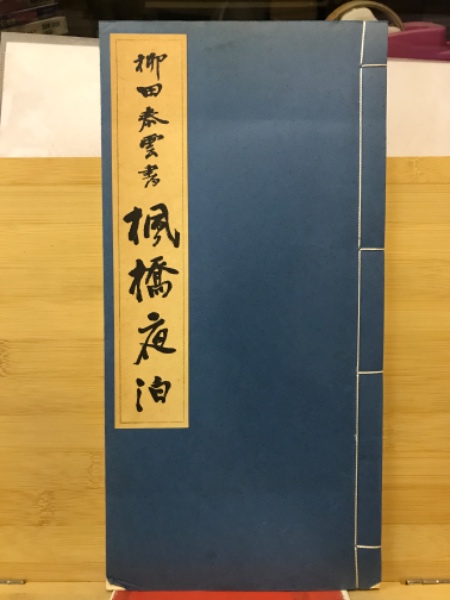 柳田泰雲書
楓橋夜泊